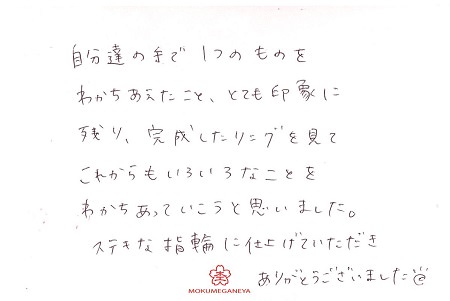 自分達の手で1つのものを
わかちあえたこと、とても印象に
残り、完成したリングを見て
これからもいろいろなことを
わかちあっていこうと思いました。
ステキな指輪に仕上げていただき
ありがとうございました
MOKUMEGANEYA